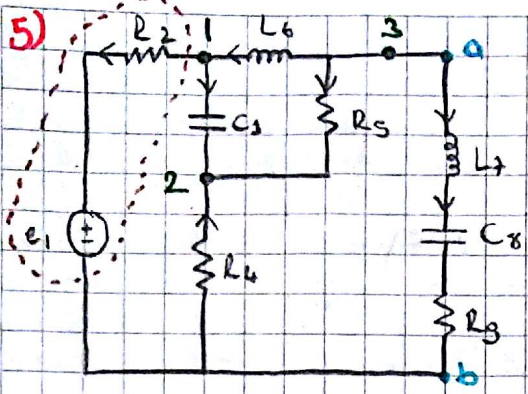 5) R2 1 L6 3 a
C3 R5 L7
2
e1 ± R4 C8
R9
b